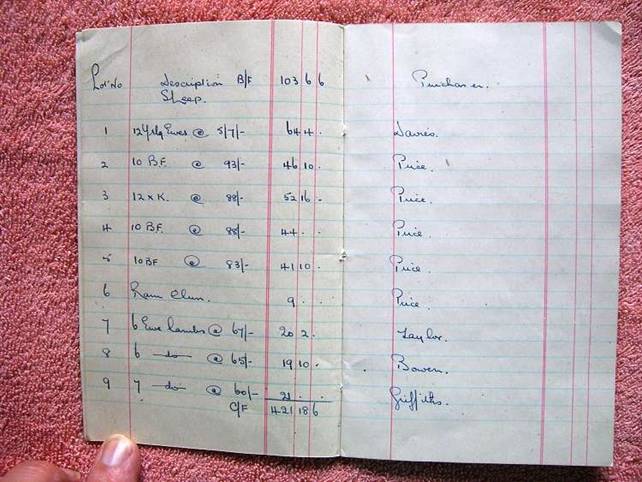 Lot No Description B/F 103 6 6 Purchaser.
Sheep.
1 12 Yrlg Ewes @ 5/7/- 64 4 . Davies.
2 10 B.F. @ 93/- 46 10 . Price.
3 12 x K. @ 88/- 52 16 . Price.
4 10 BF. @ 88/- 44 . . Price.
5 10 BF @ 83/- 41 10 . Price.
6 Ram Clun. 9 . . Price.
7 6 Ewe lambs @ 67/- 20 2 . Taylor.
8 6 —do— @ 65/- 19 10 . Bowen.
9 7 —do— @ 60/- 21 . . Griffiths.
C/F 421 18 6